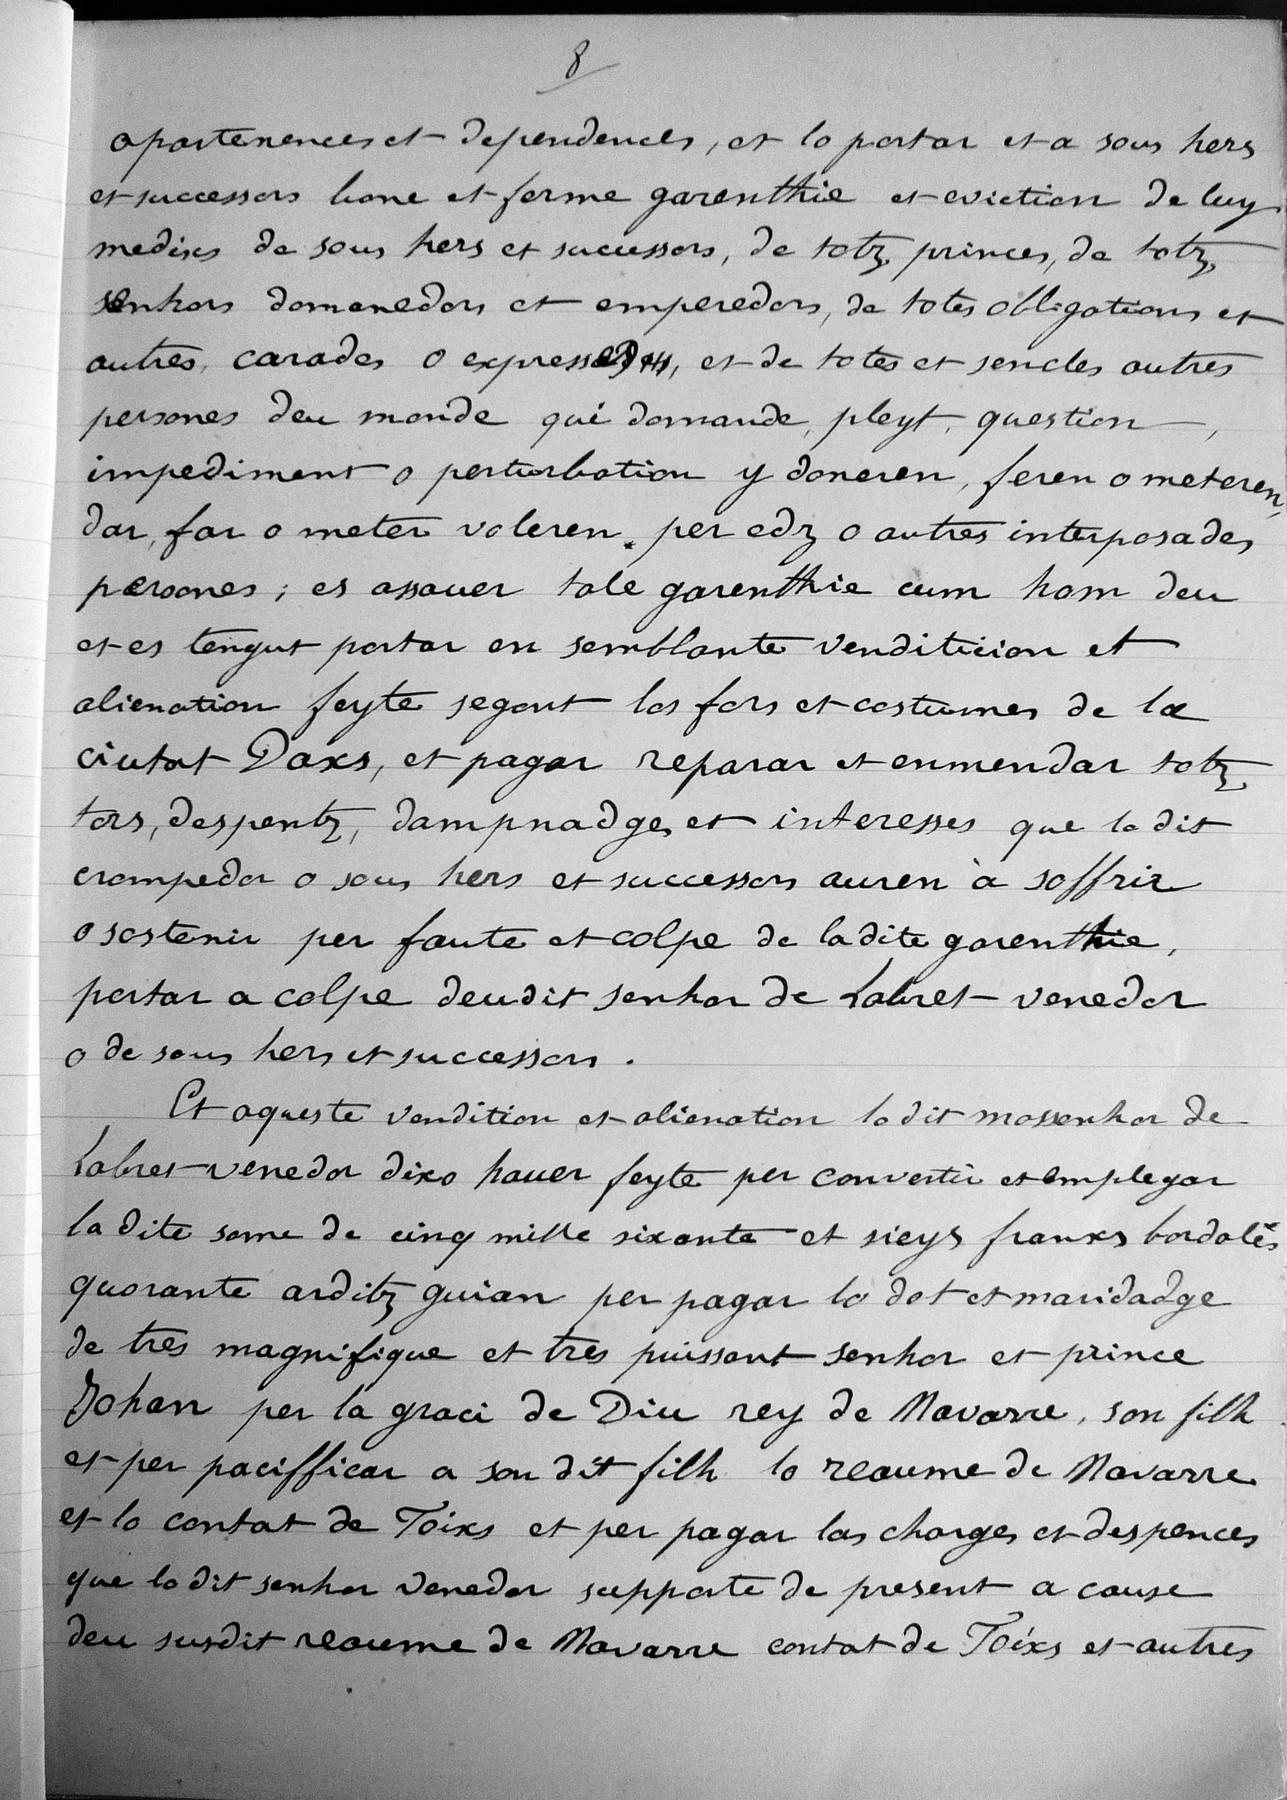 8
apartenences et dependences, et lo portar et a sous hers
et successors bone et ferme garenthie et eviction de luy
medixs de sous hers et successors, de totz princes, de totz
senhors domanedors et emperedors, de totes obligations et
autres, carades o expressedes, et de totes et sencles autres
persones deu monde qui domande, pleyt, question,
impediment o perturbation y doneren, feren o meteren,
dar, far o meter voleren per edz o autres interposades
persones ; es assauer tale garenthie cum hom deu
et es tengut portar en semblante venditicion et
alienation feyte segont los fors et costumes de la
ciutat Daxs, et pagar reparar et enmendar totz
tors, despentz, dampnadges et interesses que lo dit
crompedor o sous hers et successors auren à soffrir
o sostenir per faute et colpe de la dite garenthie,
portar a colpe deudit senhor de Labret venedor
o de sous hers et successors.
Et aqueste vendition et alienation lo dit mossenhor de
Labret venedor dixo hauer feyte per convertir et emplegar
la dite some de cinq mille sixante et sieys franxs bordalés
quorante arditz guian per pagar lo dot et maridadge
de tres magnifique et tres puissant senhor et prince
Johan per la graci de Diu rey de Navarre, son filh
et per paciffficar a son dit filh lo reaume de Navarre
et lo contat de Foixs et per pagar las charges et despences
que lo dit senhor venedor supporte de present a cause
deu susdit reaume de Navarre contat de Foixs et autres